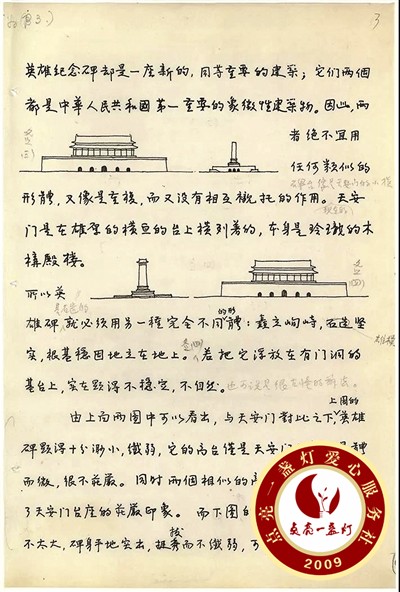 3
英雄紀念碑却是一座新的,同等重要的建築;它們两個
都是中華人民共和國第一重要的象徵性建築物。因此,两
者绝不宜用
任何類似的
形體,又像是重複,而又没有相互襯托的作用。天安
門是在雄厚的横亘的台上横列着的,本身是玲瓏的木
構殿樓。
所以英
雄碑就必须用另一種完全不同的形體:矗立峋峙,石造坚
实,根基稳固地立在地上。若把它浮放在有门洞的
基台上,实在顕得不稳定,不自然。
由上面两图中可以看出,与天安门對比之下,上图的英雄
碑顕得十分渺小,纖弱,它的高台僅是天安门
而微,很不荘嚴。同时两個相似的
了天安门台座的荘嚴印象。而下图的
不太大,碑身平地突出,挺拔而不纖弱,可
点亮一盏灯爱心服务社
点亮一盏灯
2009